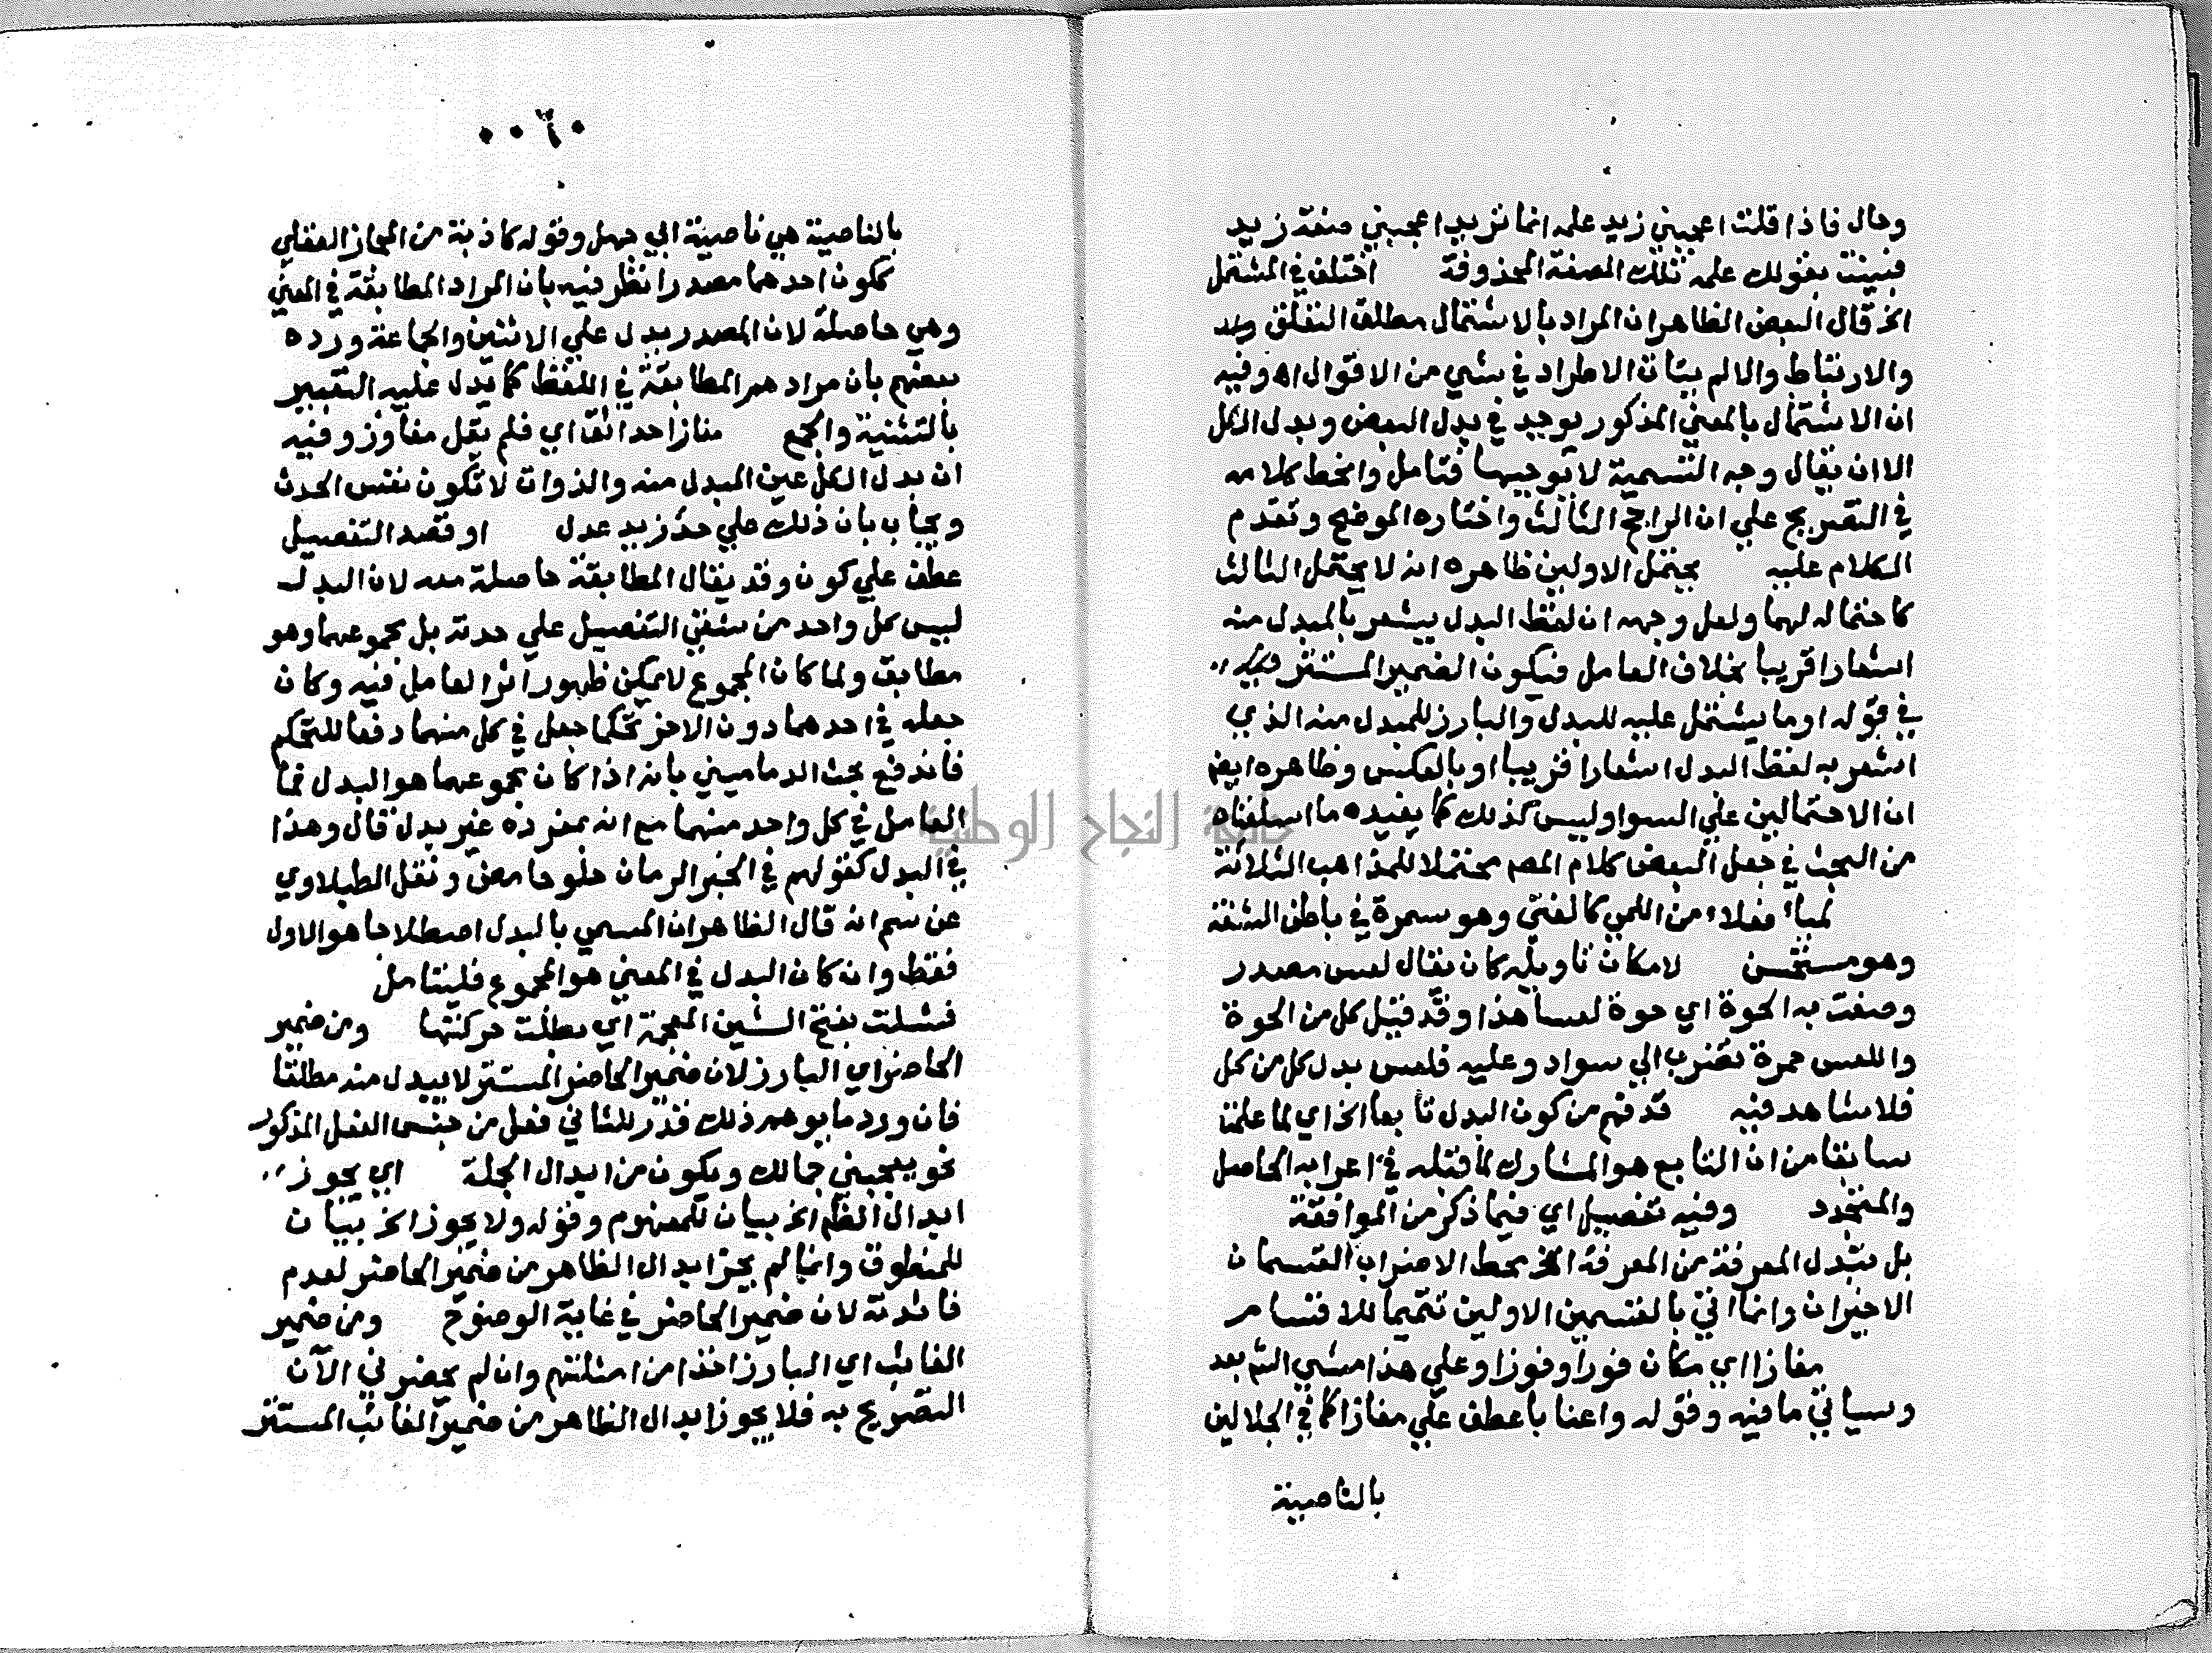 وحال فاذا قلت اعجبني زيد علمه انما تريد اعجبني صفة زيد
فبينت بقولك علمه تلك الصفة المحذوفة اختلف في المشتمل
الخ قال البعض الظاهر ان المراد بالاشتمال مطلق التعلق
والارتباط والا لم يتات الاطراد في شي من الاقوال اه وفيه
ان الاشتمال بالمعني المذكور يوجد في بدل البعض وبدل الكل
الا ان يقال وجه التسمية لا توجيهها فتامل وانحط كلامه
في التصريح علي ان الراجح الثالث واختاره الموضح وتقدم
الكلام عليه يحتمل الاولين ظاهره انه لا يحتمل الثالث
كاحتماله لهما ولعل وجهه ان لفظ البدل يشعر بالمبدل منه
اشعارا قريبا بخلاف العامل فيكون الضمير المستتر
في قوله او ما يشتمل عليه للبدل والبارز للمبدل منه الذي
اشعر به لفظ البدل اشعارا قريبا او بالعكس وظاهره ايضا
ان الاحتمالين علي السوا وليس كذلك كما يفيده ما اسلفناه
من البحث في جعل البعض كلام المصم محتملا للمذاهب الثلاثة
لمياء فعلاء من اللمي كالفتي وهو سمرة في باطن الشفة
وهو مستحسن لامكان تاويله كان يقال لعس مصدر
وصفت به الحوة اي حوة لعسا هذا وقد قيل كل من الحوة
واللعس حمرة تضرب الي سواد وعليه فلعس بدل كل من كل
فلا شاهد فيه قد فهم من كون البدل تابعا الخ اي لما علمنا
سابقا من ان التابع هو المشارك لما قبله في اعرابه الحاصل
والمتجدد وفيه تفصيل اي فيما ذكر من الموافقة
بل تبدل المعرفة من المعرفة الخ محط الاضراب القسمان
الاخيران وانما اتي بالقسمين الاولين تتميما للاقسام
مفازا اي مكان فوز او فوزا وعلي هذا مشي الشم بعد
وسياتي ما فيه وقوله واعنابا عطف علي مفازا كما في الجلالين
بالناصية
٠٠٦٠
بالناصية هي ناصية ابي جهل وقوله كاذبة من المجاز العقلي
ككون احدهما مصدرا نظر فيه بان المراد المطابقة في المعني
وهي حاصلة لان المصدر يدل علي الاثنين والجاعة ورده
بعضهم بان مرادهم المطابقة في اللفظ كما يدل عليه التعبير
بالتثنية والجمع مفازا حدائق اي فلم يقل مفاوز وفيه
ان بدل الكل عين المبدل منه والذوات لا تكون نفس الحدث
ويجاب بان ذلك علي حد زيد عدل او قصد التفصيل
عطف علي كون وقد يقال المطابقة حاصلة معه لان البدل
ليس كل واحد من شقي التفصيل علي حدته بل مجموعهما وهو
مطابق ولما كان المجموع لا يمكن ظهور اثر العامل فيه وكان
جعله في احدهما دون الاخر تحكما جعل في كل منهما دفعا للتحكم
فاندفع بحث الدماميني بانه اذا كان مجموعهما هو البدل فما
العامل في كل واحد منهما مع انه بمفرده غير بدل قال وهذا
في البدل كقولهم في الخبر الرمان حلو حامض ونقل الطبلاوي
عن سم انه قال الظاهر ان المسمي بالبدل اصطلاحا هو الاول
فقط وان كان البدل في المعني هو المجموع فليتامل
فشلت بفتح الشين المعجمة اي بطلت حركتها ومن ضمير
الحاضر اي البارز لان ضمير الحاضر المستتر لا يبدل منه مطلقا
فان ورد ما يوهم ذلك قدر للثاني فعل من جنس الفعل المذكور
نحو يعجبني جمالك ويكون من ابدال الجملة اي يجوز
ابدال الظم الخ بيان للمفهوم وقوله ولا يجوز الخ بيان
للمنطوق وانما لم يجز ابدال الظاهر من ضمير الحاضر لعدم
فائدته لان ضمير الحاضر في غاية الوضوح ومن ضمير
الغائب اي البارز اخذا من امثلتهم وان لم يحضرني الآن
التصريح به فلا يجوز ابدال الظاهر من ضمير الغائب المستتر
جامعة النجاح الوطنية